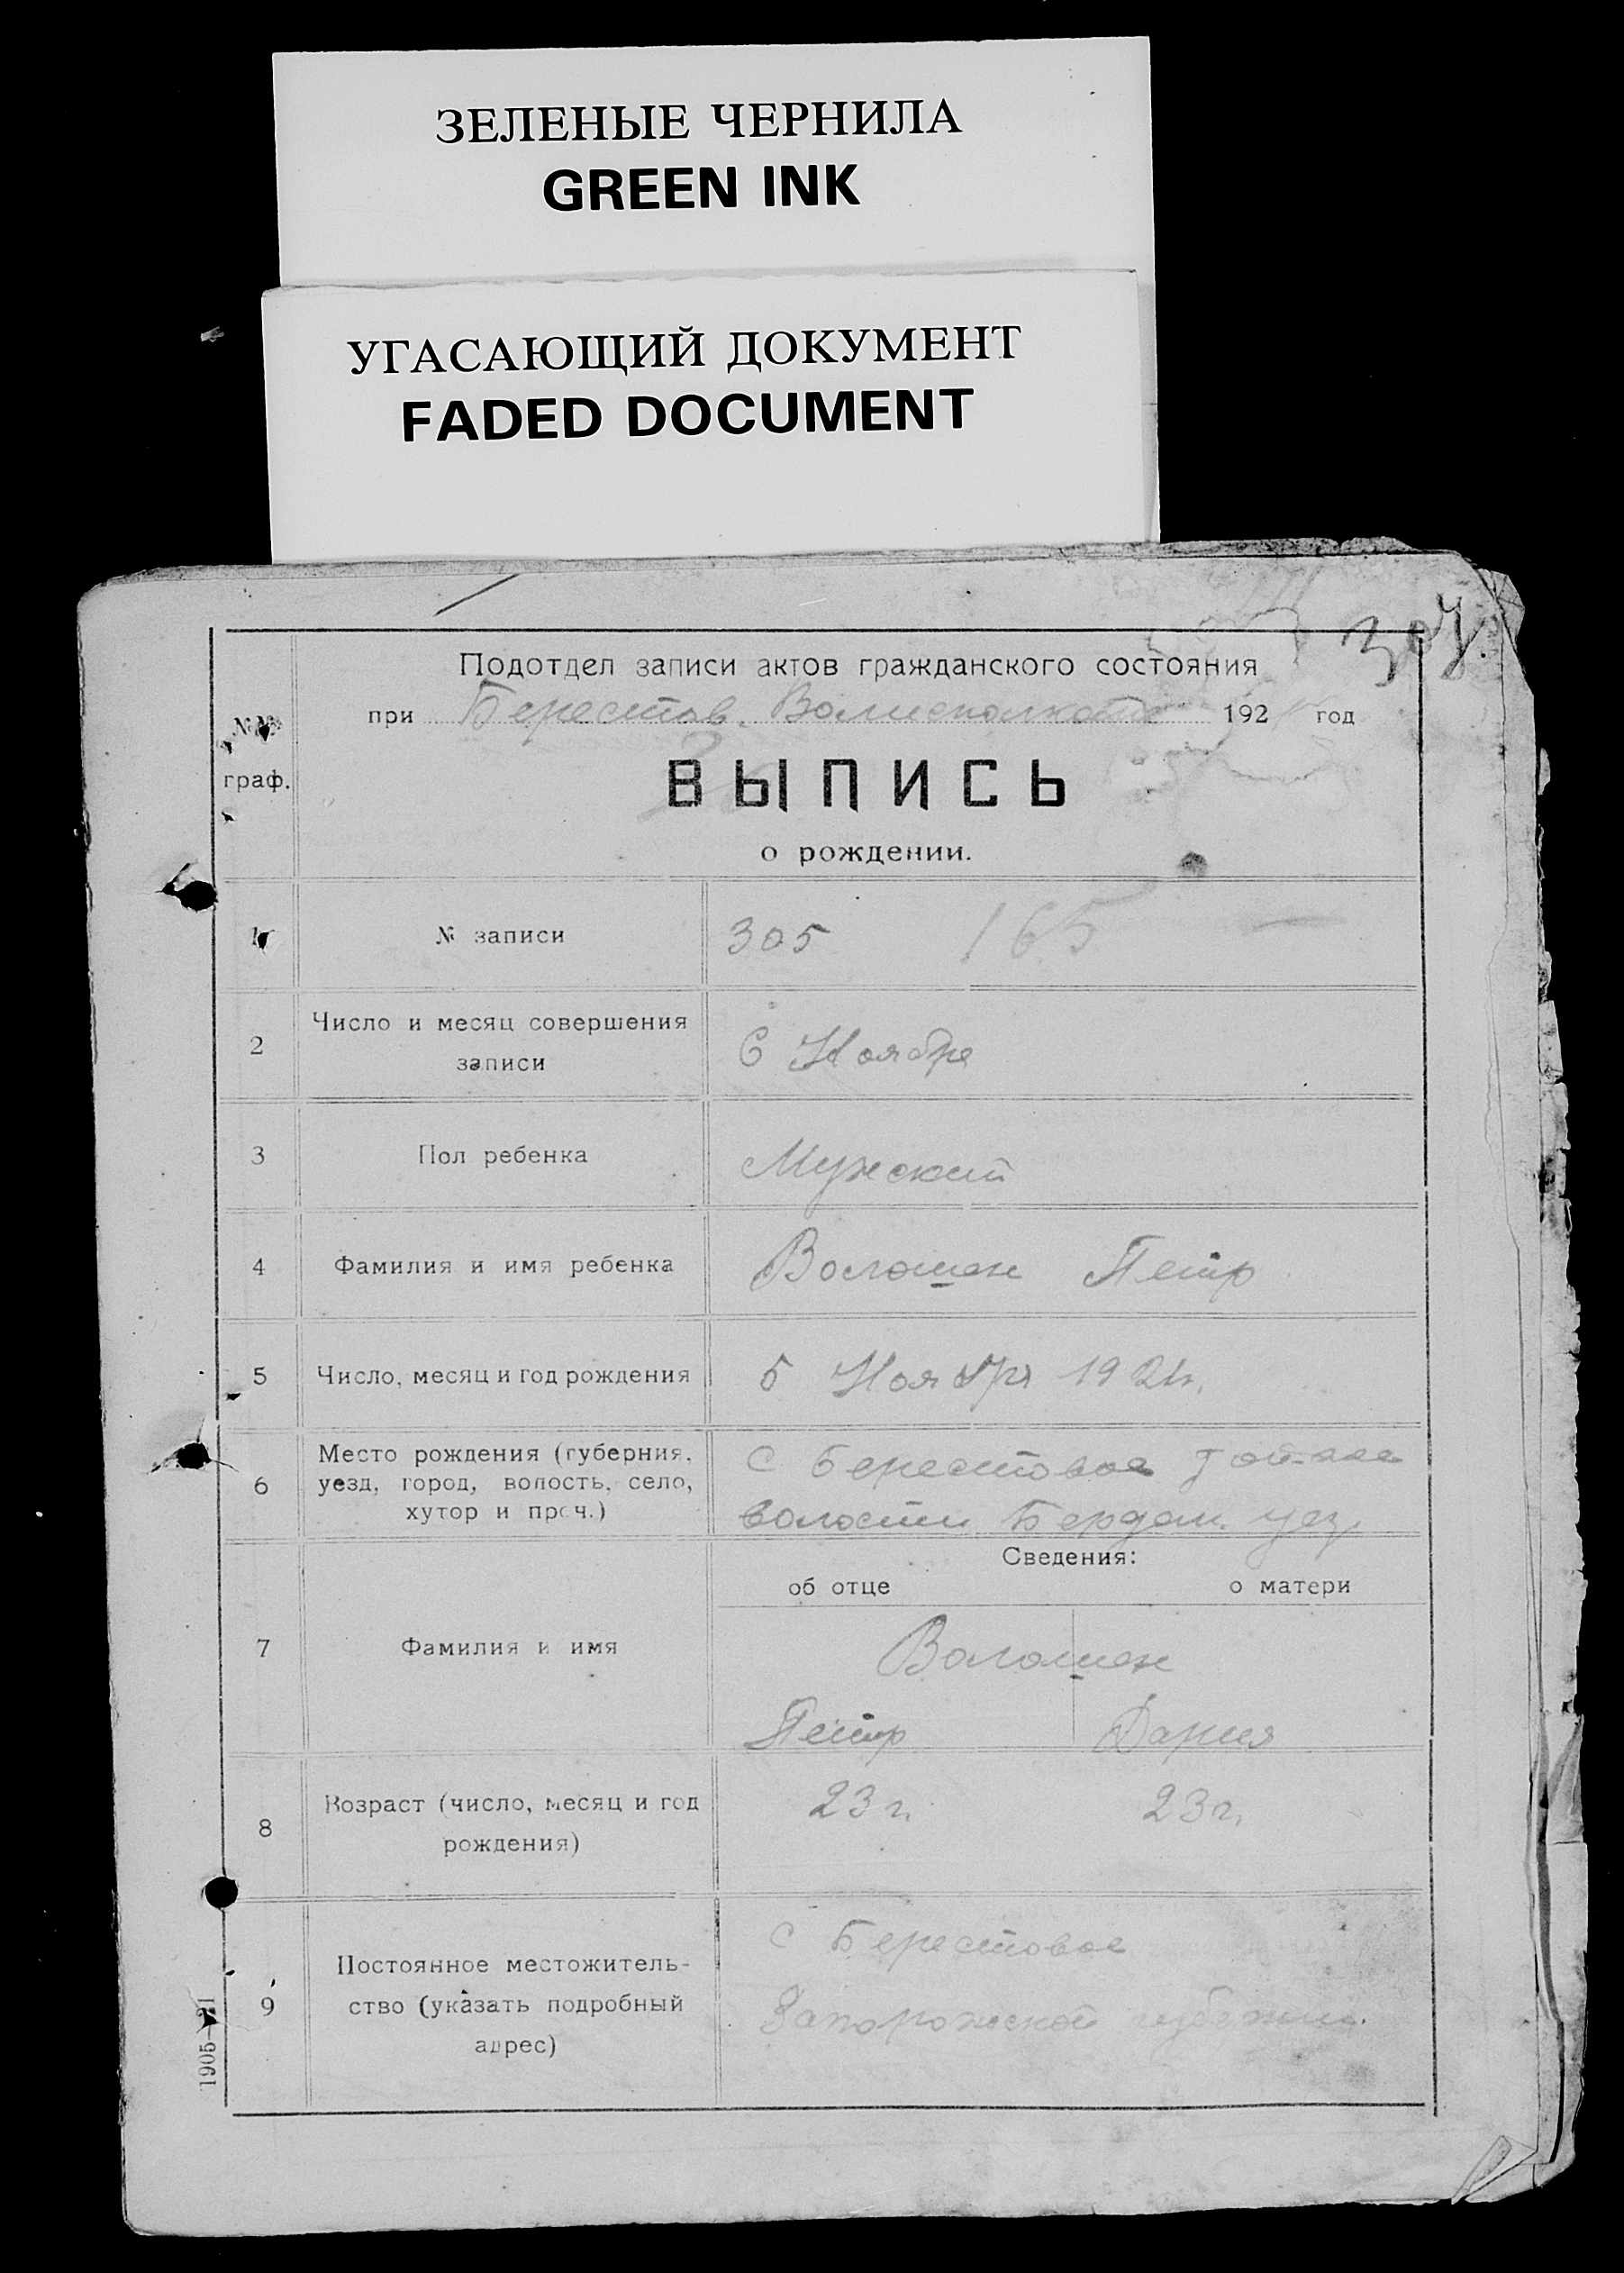 ЗЕЛЕНЫЕ ЧЕРНИЛА
GREEN INK
УГАСАЮЩИЙ ДОКУМЕНТ
FADED DOCUMENT
Подотдел записи актов гражданского состояния
при Берестов. 192 год
№№ граф.
ВЫПИСЬ
о рождении.
1 № записи 305 165
2 Число и месяц совершения
записи 6 Ноября
3 Пол ребенка Мужский
4 Фамилия и имя ребенка Волошен Петр
5 Число, месяц и год рождения 5 Ноября
6 Место рождения (губерния,
уезд, город, волость, село,
хутор и проч.)
С Берестовое
волости Бердян. уез.
Сведения:
об отце о матери
7 Фамилия и имя Волошен
Петр Дария
8 Возраст (число, месяц и год
рождения) 23 г. 23 г.
9 Постоянное местожитель-
ство (указать подробный
адрес)
С Берестовое
Запорожской губернии.